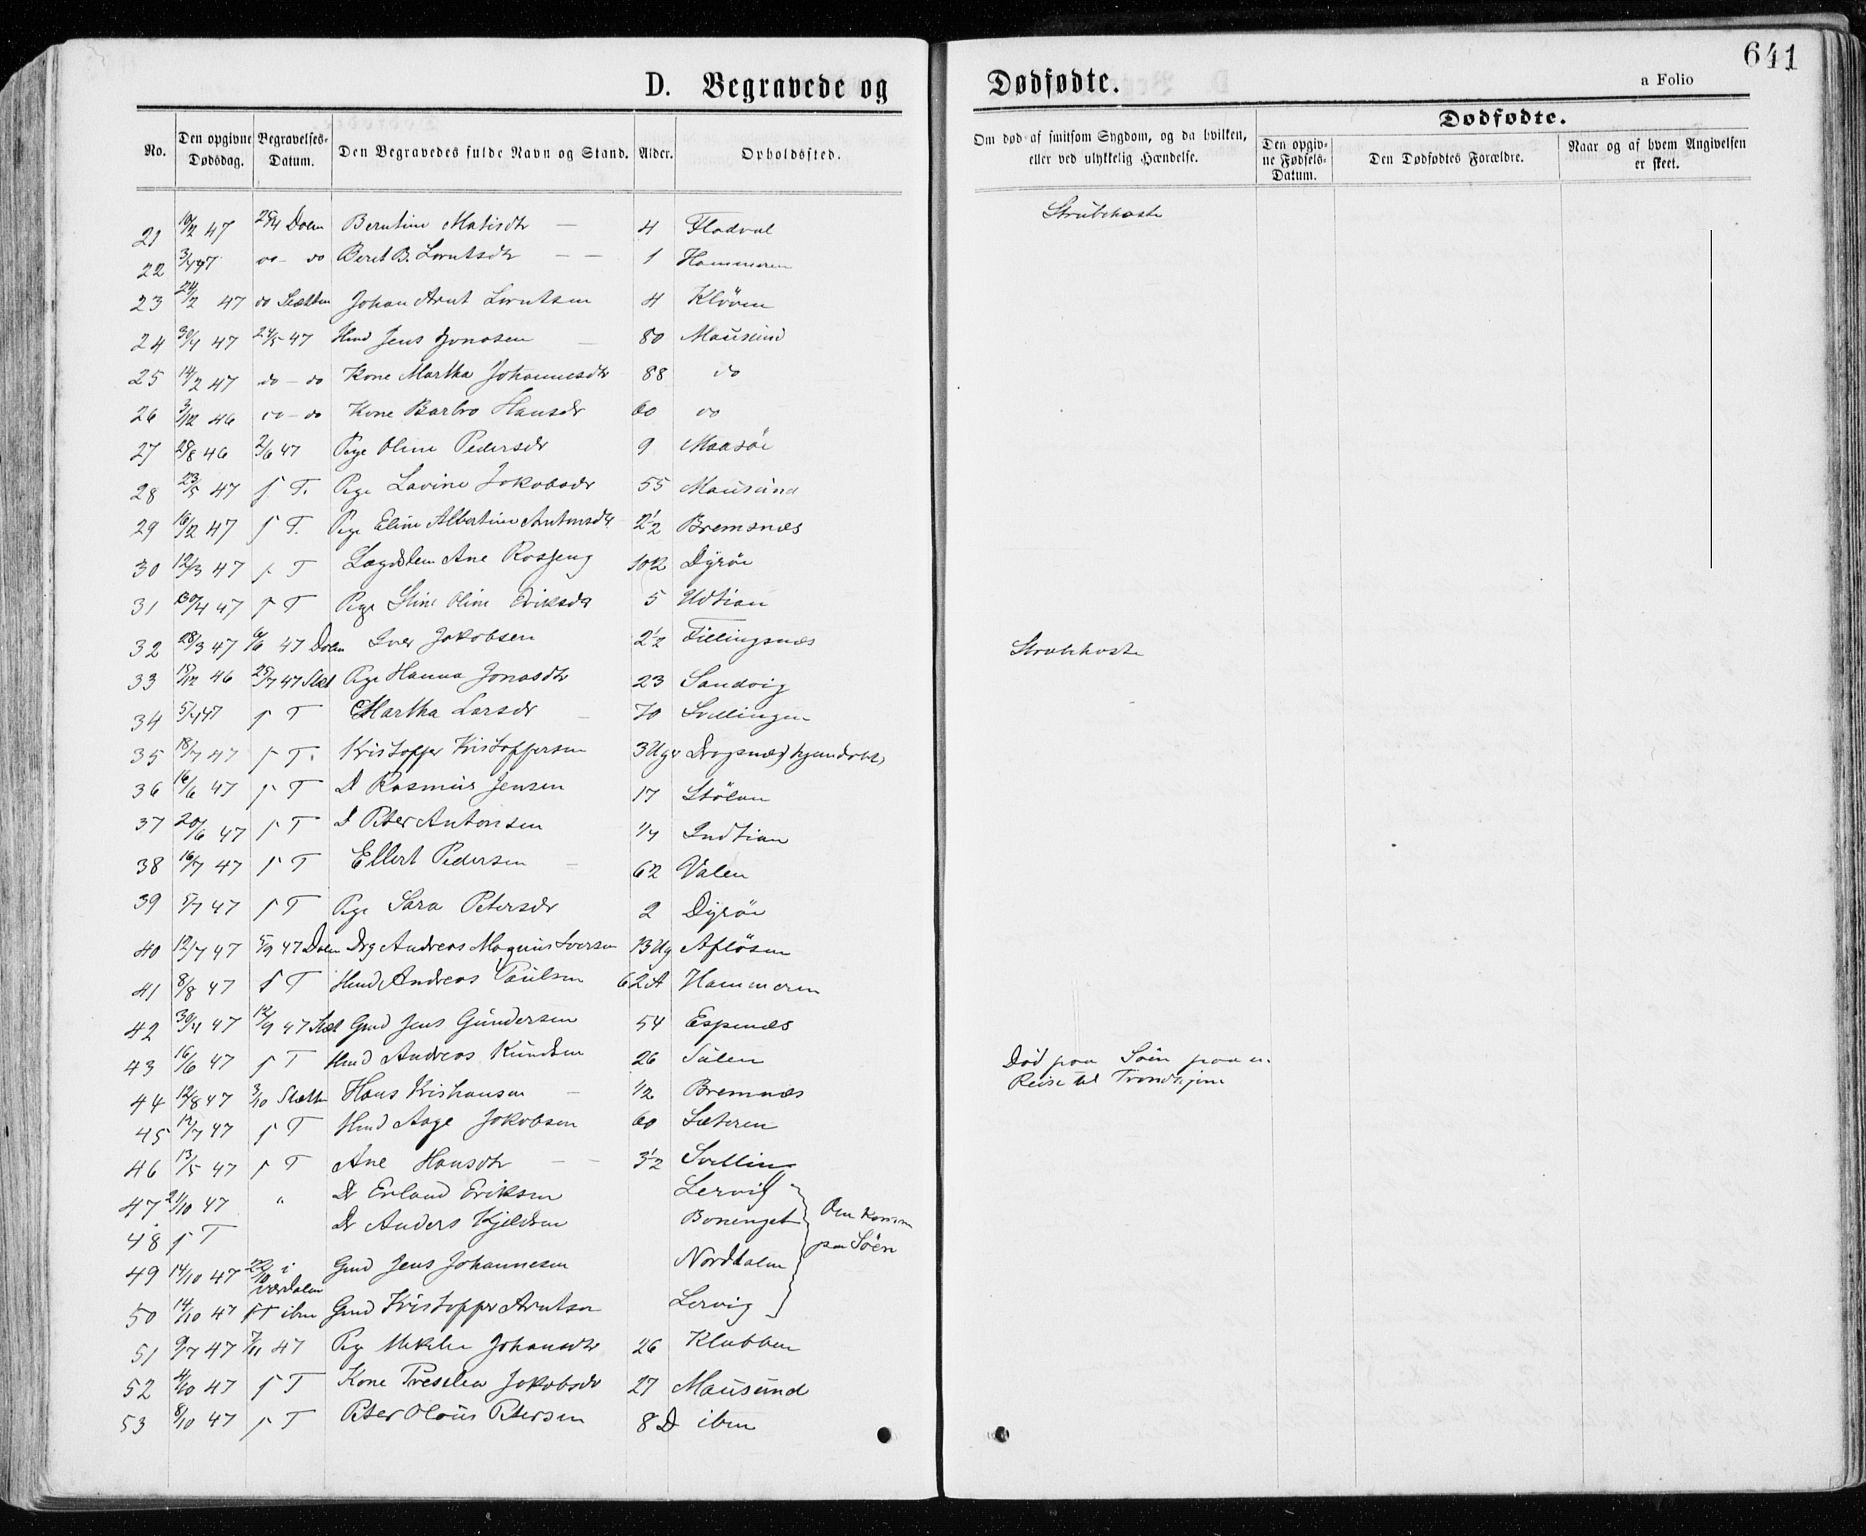 641
D. Begravede og Dødfødte.
a Folio
No.
Den opgivne Dødsdag.
Begravelses-Datum.
Den Begravedes fulde Navn og Stand.
Alder.
Opholdssted.
Om død af smitsom Sygdom, og da hvilken, eller ved ulykkelig Hændelse.
Dødfødte.
Den opgivne Fødsels-Datum.
Den Dødfødtes Forældre.
Naar og af hvem Angivelsen er skeet.
21 19/2 47 25/4 Doln Berntine Matisdtr — 4 Flodval Strubehoste
22 3/4 47 do — do Beret B. Lorntsdtr — — 1 Hammeren
23 24/2 47 do Sletten Johan Arnt Lorntsen 4 Kløven
24 30/4 47 24/5 47 Hmd Jens Jonasen — 80 Mausund
25 14/2 47 do — do Kone Martha Johannesdtr 88 do
26 3/12 46 do — do Kone Barbro Hansdr 60 do
27 28/8 46 2/6 47 Pge Oline Pedersdr 9 Maasøe
28 23/5 47 s. T. Pge Lavine Jokobsdr 55 Mausund
29 16/2 47 s T. Pge Eline Albertine Antonsdr 2 1/2 Bremsnæs
30 12/3 47 s T Lægdslem Ane Rosjeng 102 Dyrøe
31 30/4 47 s T Pge Stine Oline Eriksdr 5 Udtian
32 28/3 47 6/6 47 Doln Iver Jakobsen 2 1/2 Fillingsnæs Strubehoste
33 15/12 46 25/7 47 Slet Pge Hanna Jonasdtr 23 Sandvig
34 5/4 47 s T Martha Larsdr — 70 Svellingen
35 18/7 47 s T. Kristoffer Kristoffersen 3 Uger Dragsnæs,
36 16/6 47 s T D Rasmus Jensen 17 Stølan
37 20/6 47 s T D Peter Antonsen 1/4 Indtian
38 16/7 47 s T Ellert Pedersen — 62 Valen
39 5/7 47 s T Pge Sara Petersdr 2 Dyrøe
40 12/7 47 5/9 47 Doln Drg Andreas Magnus Iversen 13 Ug Afløsen
41 8/8 47 s T Hmd Andreas Paulsen 62 A Hammeren
42 30/4 47 12/9 47 Slet Gmd Jens Gundersen 54 Espenæs
43 16/6 47 s T Hmd Andreas Knudsen 26 Sulen Død paa Søen paa en
Reise til Trondhjem
44 12/8 47 3/10 Sletten Hans Kristiansen — 1/2 Bremnæs
45 12/7 47 s T Hmd Aage Jokobsen 60 Sæteren
46 13/5 47 s T Ane Hansdtr — — 3 1/2 Svelling
47 21/10 47 " Dr Erland Eriksen Lervig
48 s T Dr Anders Kjeldsen Bonenget Omkommen
49 14/10 47 22/10 i Værdalen Gmd Jens Johannesen Nordhalm paa Søen
50 14/10 47 s T ibm Gmd Kristoffer Arntsen Lervig
51 9/7 47 7/11 47 Pge Mekelie Johansdtr 26 Klubben
52 4/10 47 s T Kone Presilia Jokobsdr 27 Mausund
53 8/10 47 s T Peter Olaus Petersen 8 D ibm